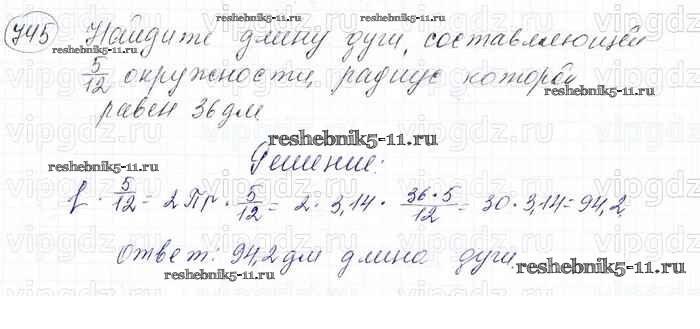 745 Найдите длину дуги, составляющей
5/12 окружности, радиус которой
равен 36 дм
Решение:
ℓ · 5/12 = 2Пr · 5/12 = 2 · 3,14 · 36·5/12 = 30 · 3,14 = 94,2
ответ: 94,2 дм длина дуги.
reshebnik5-11.ru
reshebnik5-11.ru
reshebnik5-11.ru
reshebnik5-11.ru
reshebnik5-11.ru
reshebnik5-11.ru
reshebnik5-11.ru
vipgdz.ru